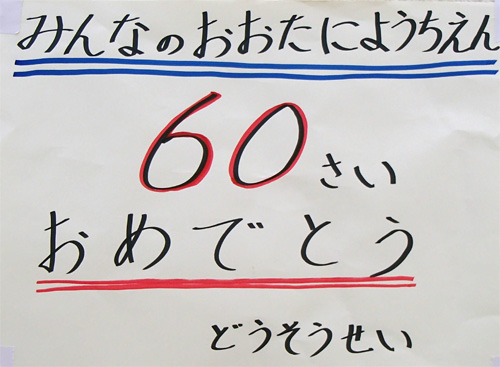 みんなのおおたにようちえん
60さい
おめでとう
どうそうせい